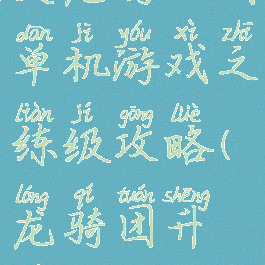 dān jī yóu xì zhī
单机游戏之
liàn jí gōng lüè
练级攻略(
lóng qí tuán shēng
龙骑团升